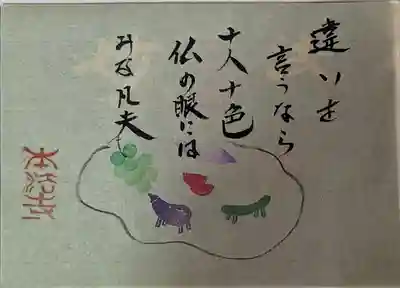 違いを
言うなら
十人十色
仏の眼には
みな凡夫